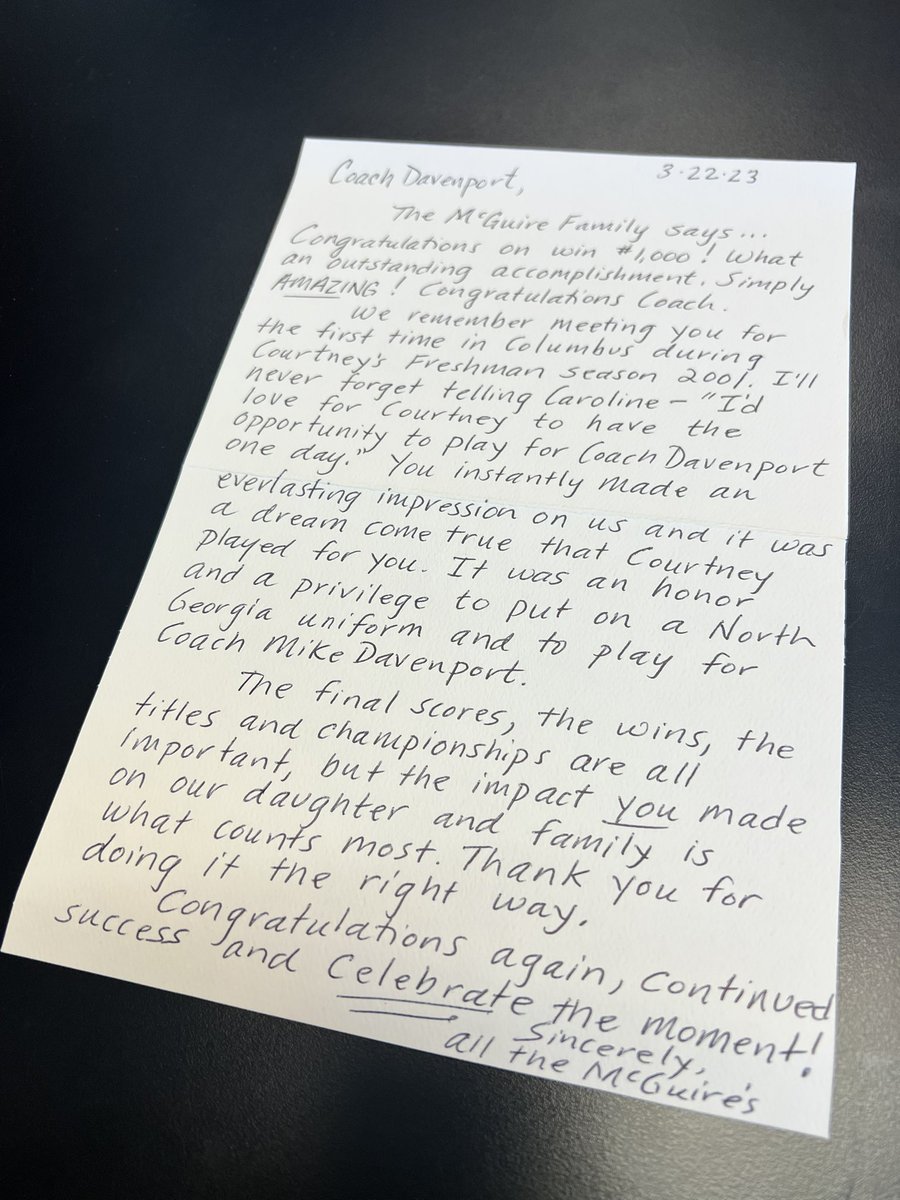 3.22.23
Coach Davenport,
The McGuire Family says...
Congratulations on win #1,000! What
an outstanding accomplishment. Simply
AMAZING! Congratulations Coach.
We remember meeting you for
the first time in Columbus during
Courtney's Freshman season 2001. I'll
never forget telling Caroline - "I'd
love for Courtney to have the
opportunity to play for Coach Davenport
one day." You instantly made an
everlasting impression on us and it was
a dream come true that Courtney
played for you. It was an honor
and a privilege to put on a North
Georgia uniform and to play for
Coach Mike Davenport.
The final scores, the wins, the
titles and championships are all
important, but the impact you made
on our daughter and family is
what counts most. Thank you for
doing it the right way.
Congratulations again, continued
success and Celebrate the moment!
Sincerely,
all the McGuire's